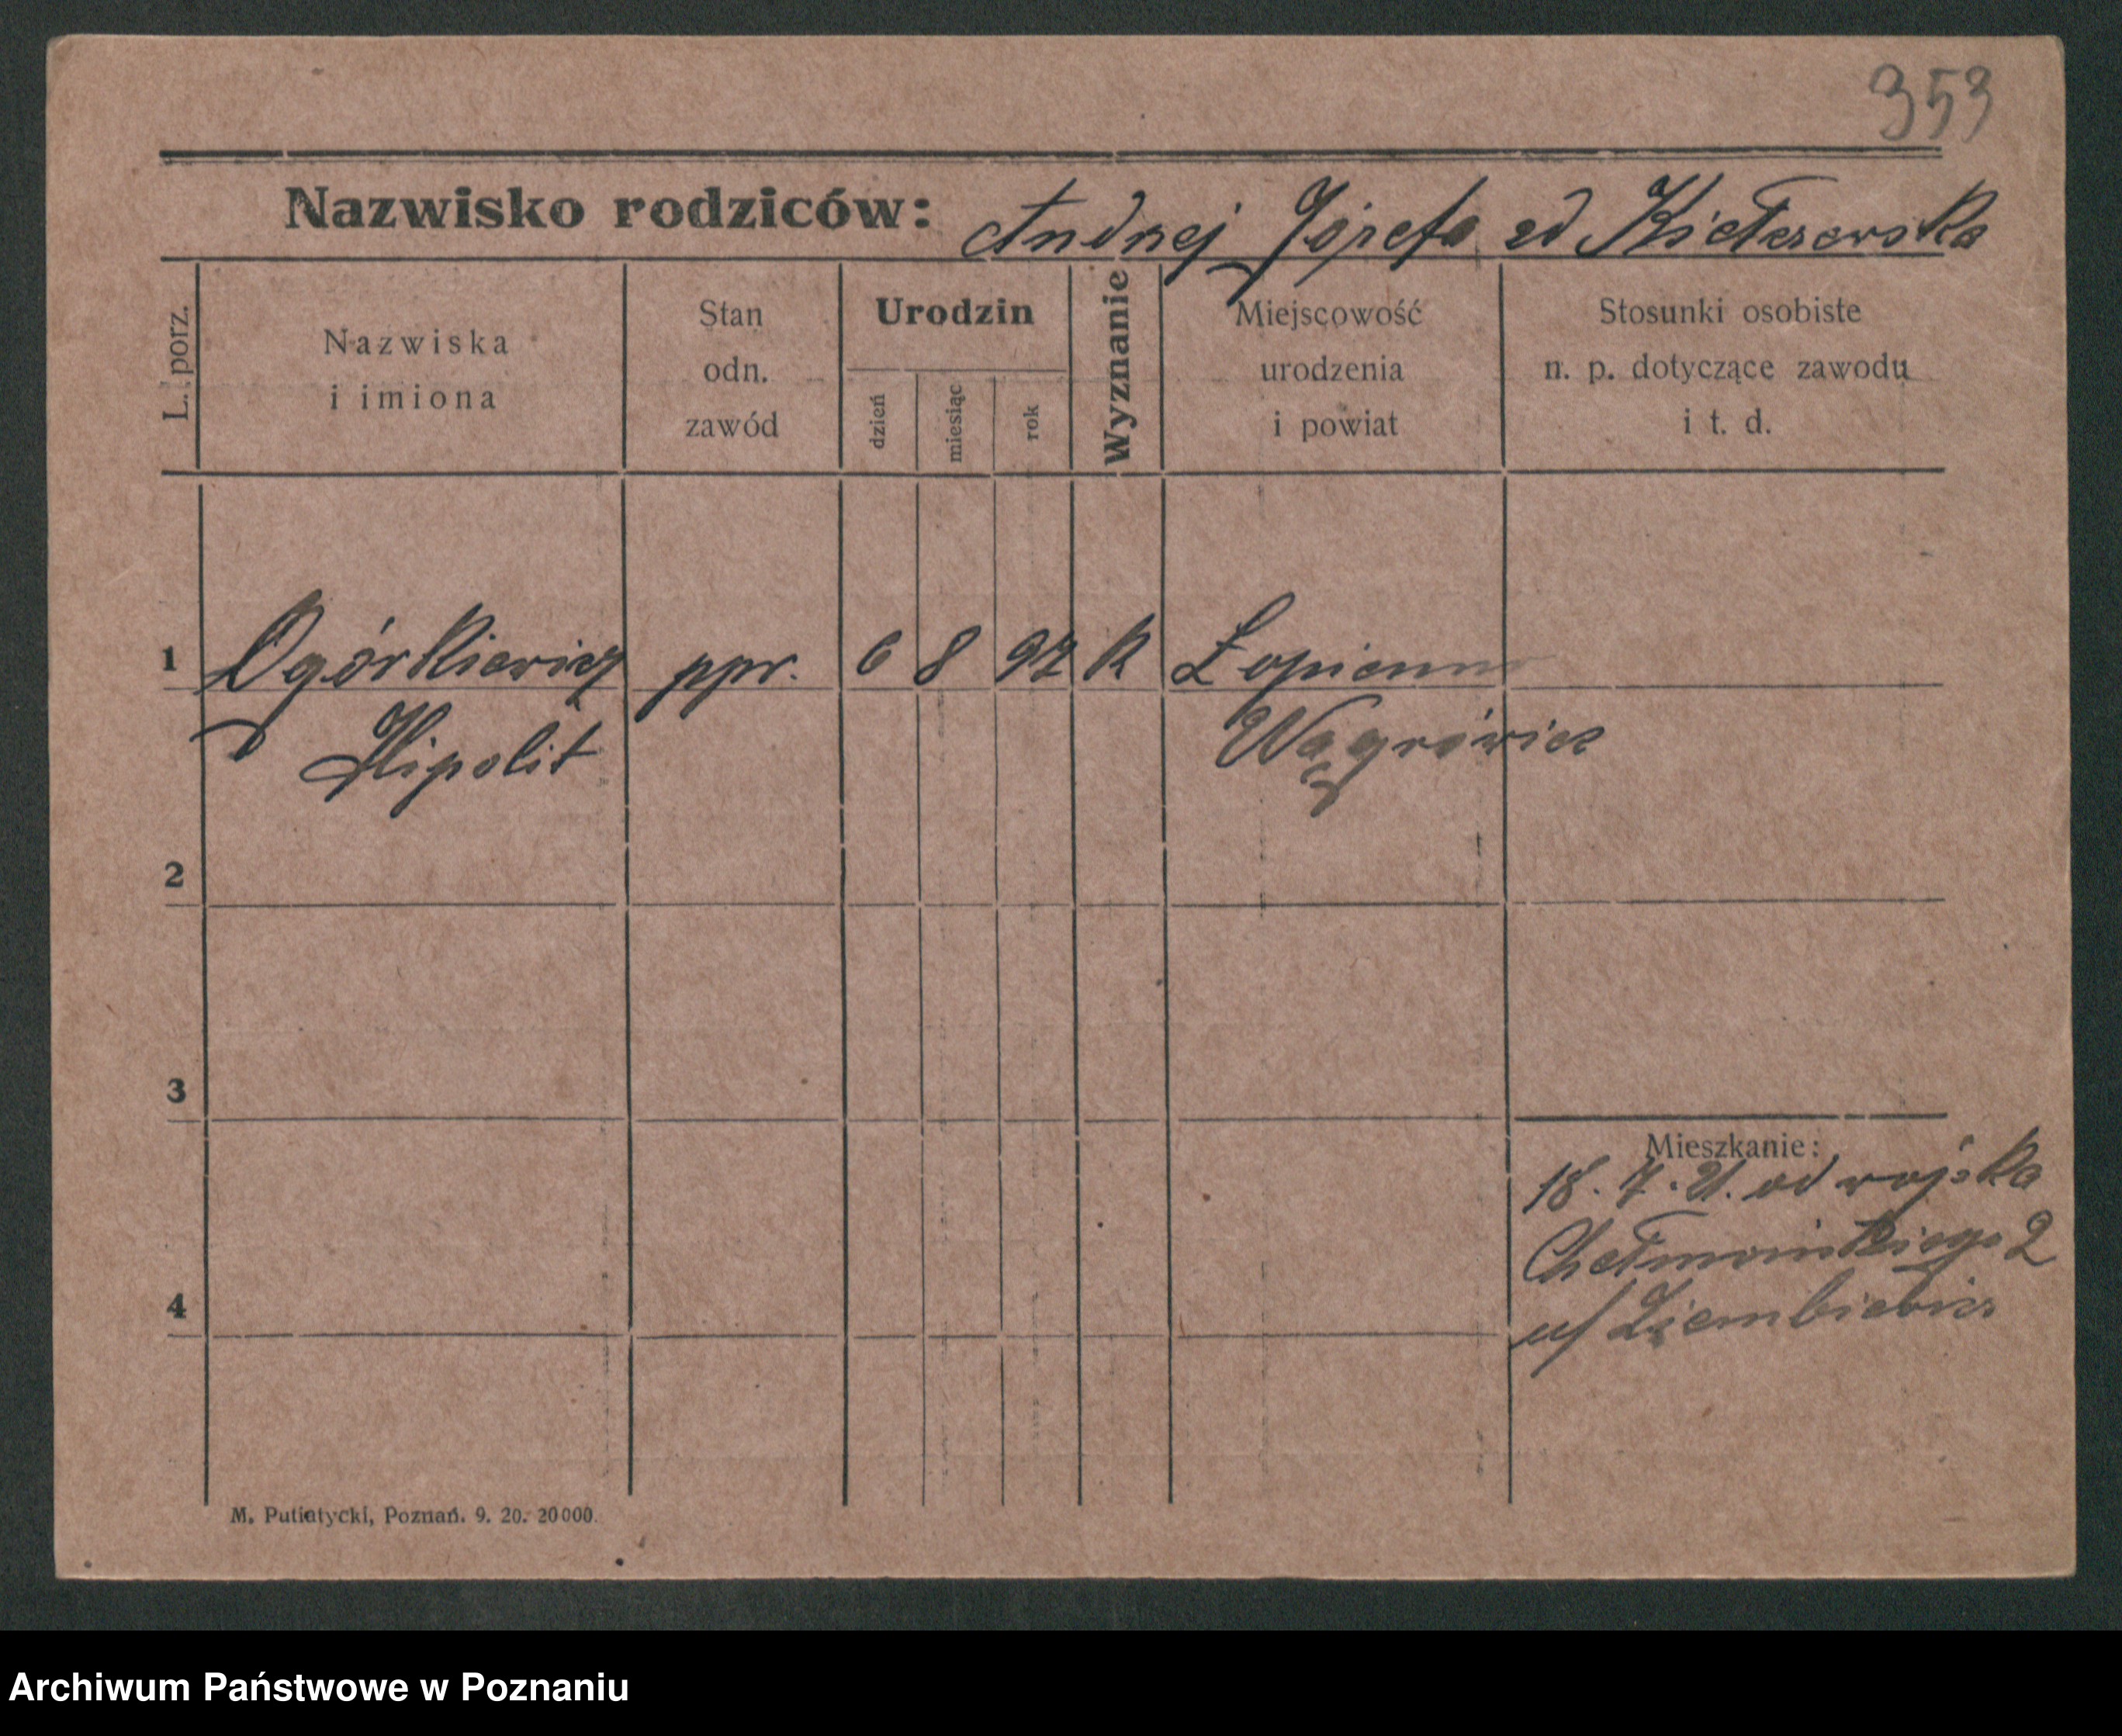 353
Nazwisko rodziców: Andrzej Józefa zd Kiełczewska
L. porz.
Nazwiska
i imiona
Stan
odn.
zawód
Urodzin
dzień
miesiąc
rok
Wyznanie
Miejscowość
urodzenia
i powiat
Stosunki osobiste
n. p. dotyczące zawodu
i t. d.
1 Ogórkiewicz ppr. 6 8 97 k Łopienno
Hipolit Wągrówiec
2
3
Mieszkanie:
18. 7. 21. od wojska
Chełmońskiego 2
4
u/ Ziembiewicz
M. Putiatycki, Poznań. 9. 20. 20000.
Archiwum Państwowe w Poznaniu